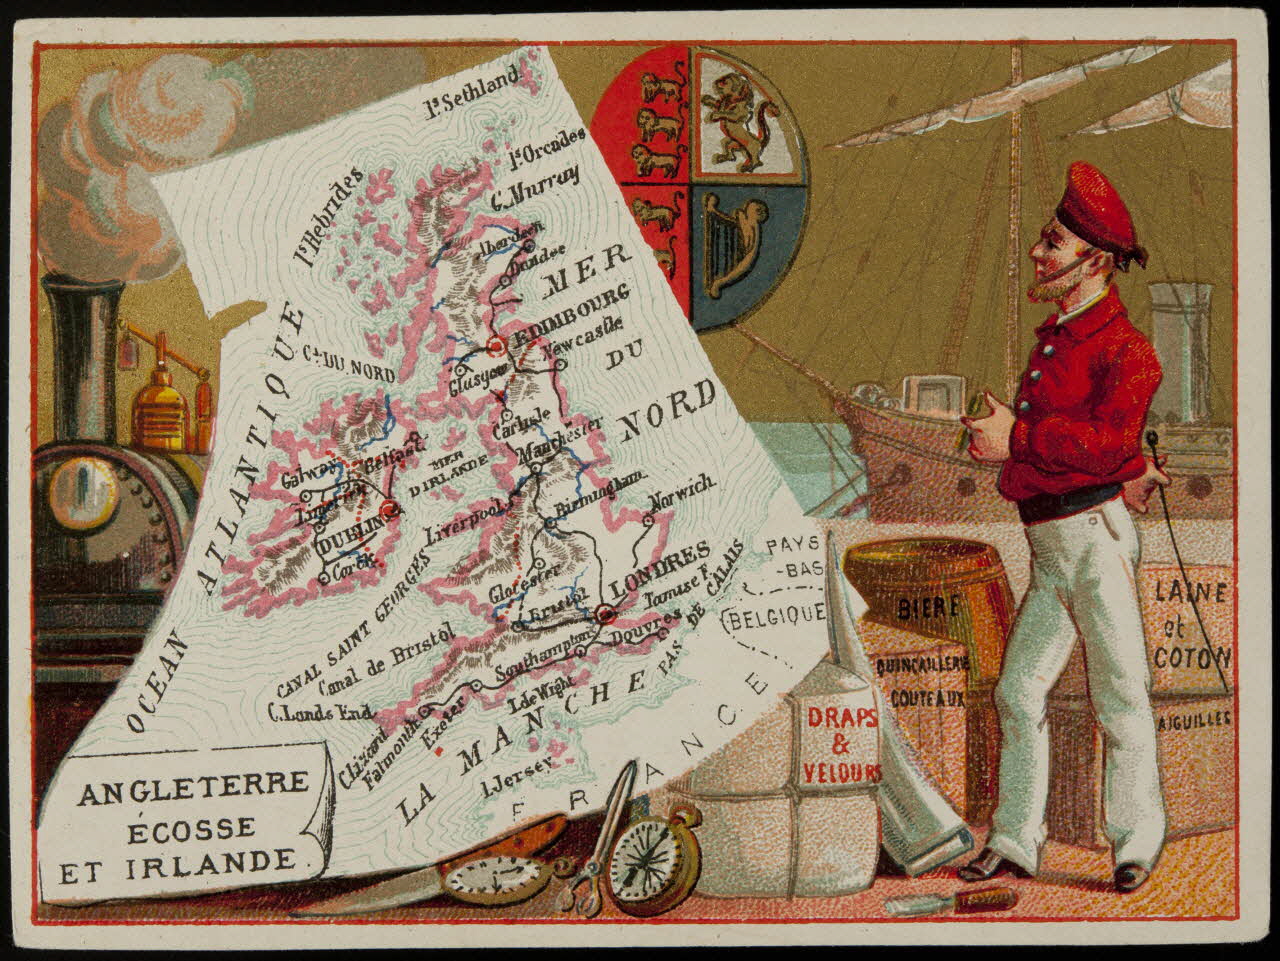 Is Sethland
Is Orcades
C. Murray
Is Hebrides
Aberdeen
Dundee
MER
DU
NORD
EDIMBOURG
Newcastle
Glasgow
Cal DU NORD
OCEAN ATLANTIQUE
Carlisle
Manchester
MER
D'IRLANDE
Belfast
Galway
Limerick
DUBLIN
Cork
Liverpool
Birmingham
Norwich
Glocester
Bristol
LONDRES
Tamise F.
Douvres
PAS DE CALAIS
PAYS
-BAS
BELGIQUE
CANAL SAINT GEORGES
Canal de Bristol
C. Lands End
Southampton
I. de Wight
Exeter
Falmouth
C. Lizard
LA MANCHE
I. Jersey
FRANCE
ANGLETERRE
ÉCOSSE
ET IRLANDE.
BIÈRE
QUINCAILLERIE
COUTEAUX
LAINE
et
COTON
AIGUILLES
DRAPS
&
VELOURS